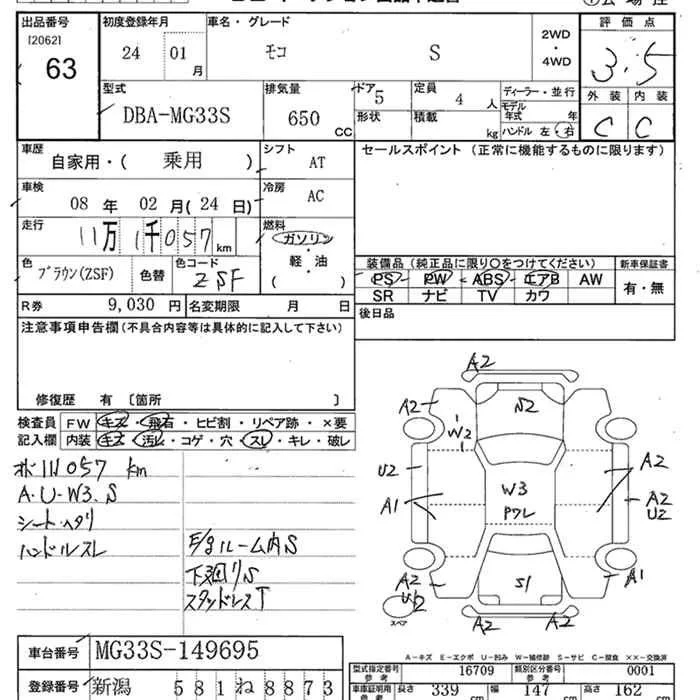 出品番号 初度登録年月 車名・グレード 評価点
[2062]
63 24 01 月 モコ S 2WD ・ 4WD 3.5
型式 排気量 ドア 定員 ディーラー・並行 外装 内装
DBA-MG33S 650 CC 5 4 人 モデル年式 年 C C
形状 積載 kg ハンドル 左・右
車歴 シフト セールスポイント（正常に機能するものに限ります）
自家用・( 乗用 ) AT
車検 冷房
08 年 02 月( 24 日) AC
走行 燃料
11万 1千057 km ガソリン
軽・油
( )
色 色コード 装備品（純正品に限り〇をつけてください） 新車保証書
ブラウン(ZSF) 色替 ZSF PS PW ABS エアB AW 有・無
SR ナビ TV カワ
R券 9,030 円 名変期限 月 日 後日品
注意事項申告欄（不具合内容等は具体的に記入して下さい）
修復歴 有 〔箇所 〕
検査員 FW キズ・飛石・ヒビ割・リペア跡・×要
記入欄 内装 キズ・汚レ・コゲ・穴・スレ・キレ・破レ
111057 km
A.U.W3.S
シートヘタリ
ハンドルスレ E/gルーム内S
下廻りS
スタッドレスT
A2
A2 S2
W2
U2 W3 A2
A1 PクレA2
U2
A2 S1 A1
U2
スペア A2 A2
車台番号 MG33S-149695
A-キズ E-エクボ U-凹み W-補修跡 S-サビ C-腐食 ××-交換済
型式指定番号 参考 16709 類別区分番号 参考 0001
登録番号 新潟 581ね8873
車庫証明用 参考 長さ 339 幅 147 高さ 162